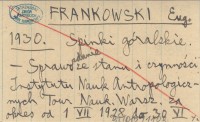 FRANKOWSKI Eug.
1930. Spinki góralskie.
— Sprawozdanie ze stanu i czynności
Instytutu Nauk Antropologicz-
nych Tow. Nauk. Warsz. za
okres od 1 VII 1928 do 30 VI